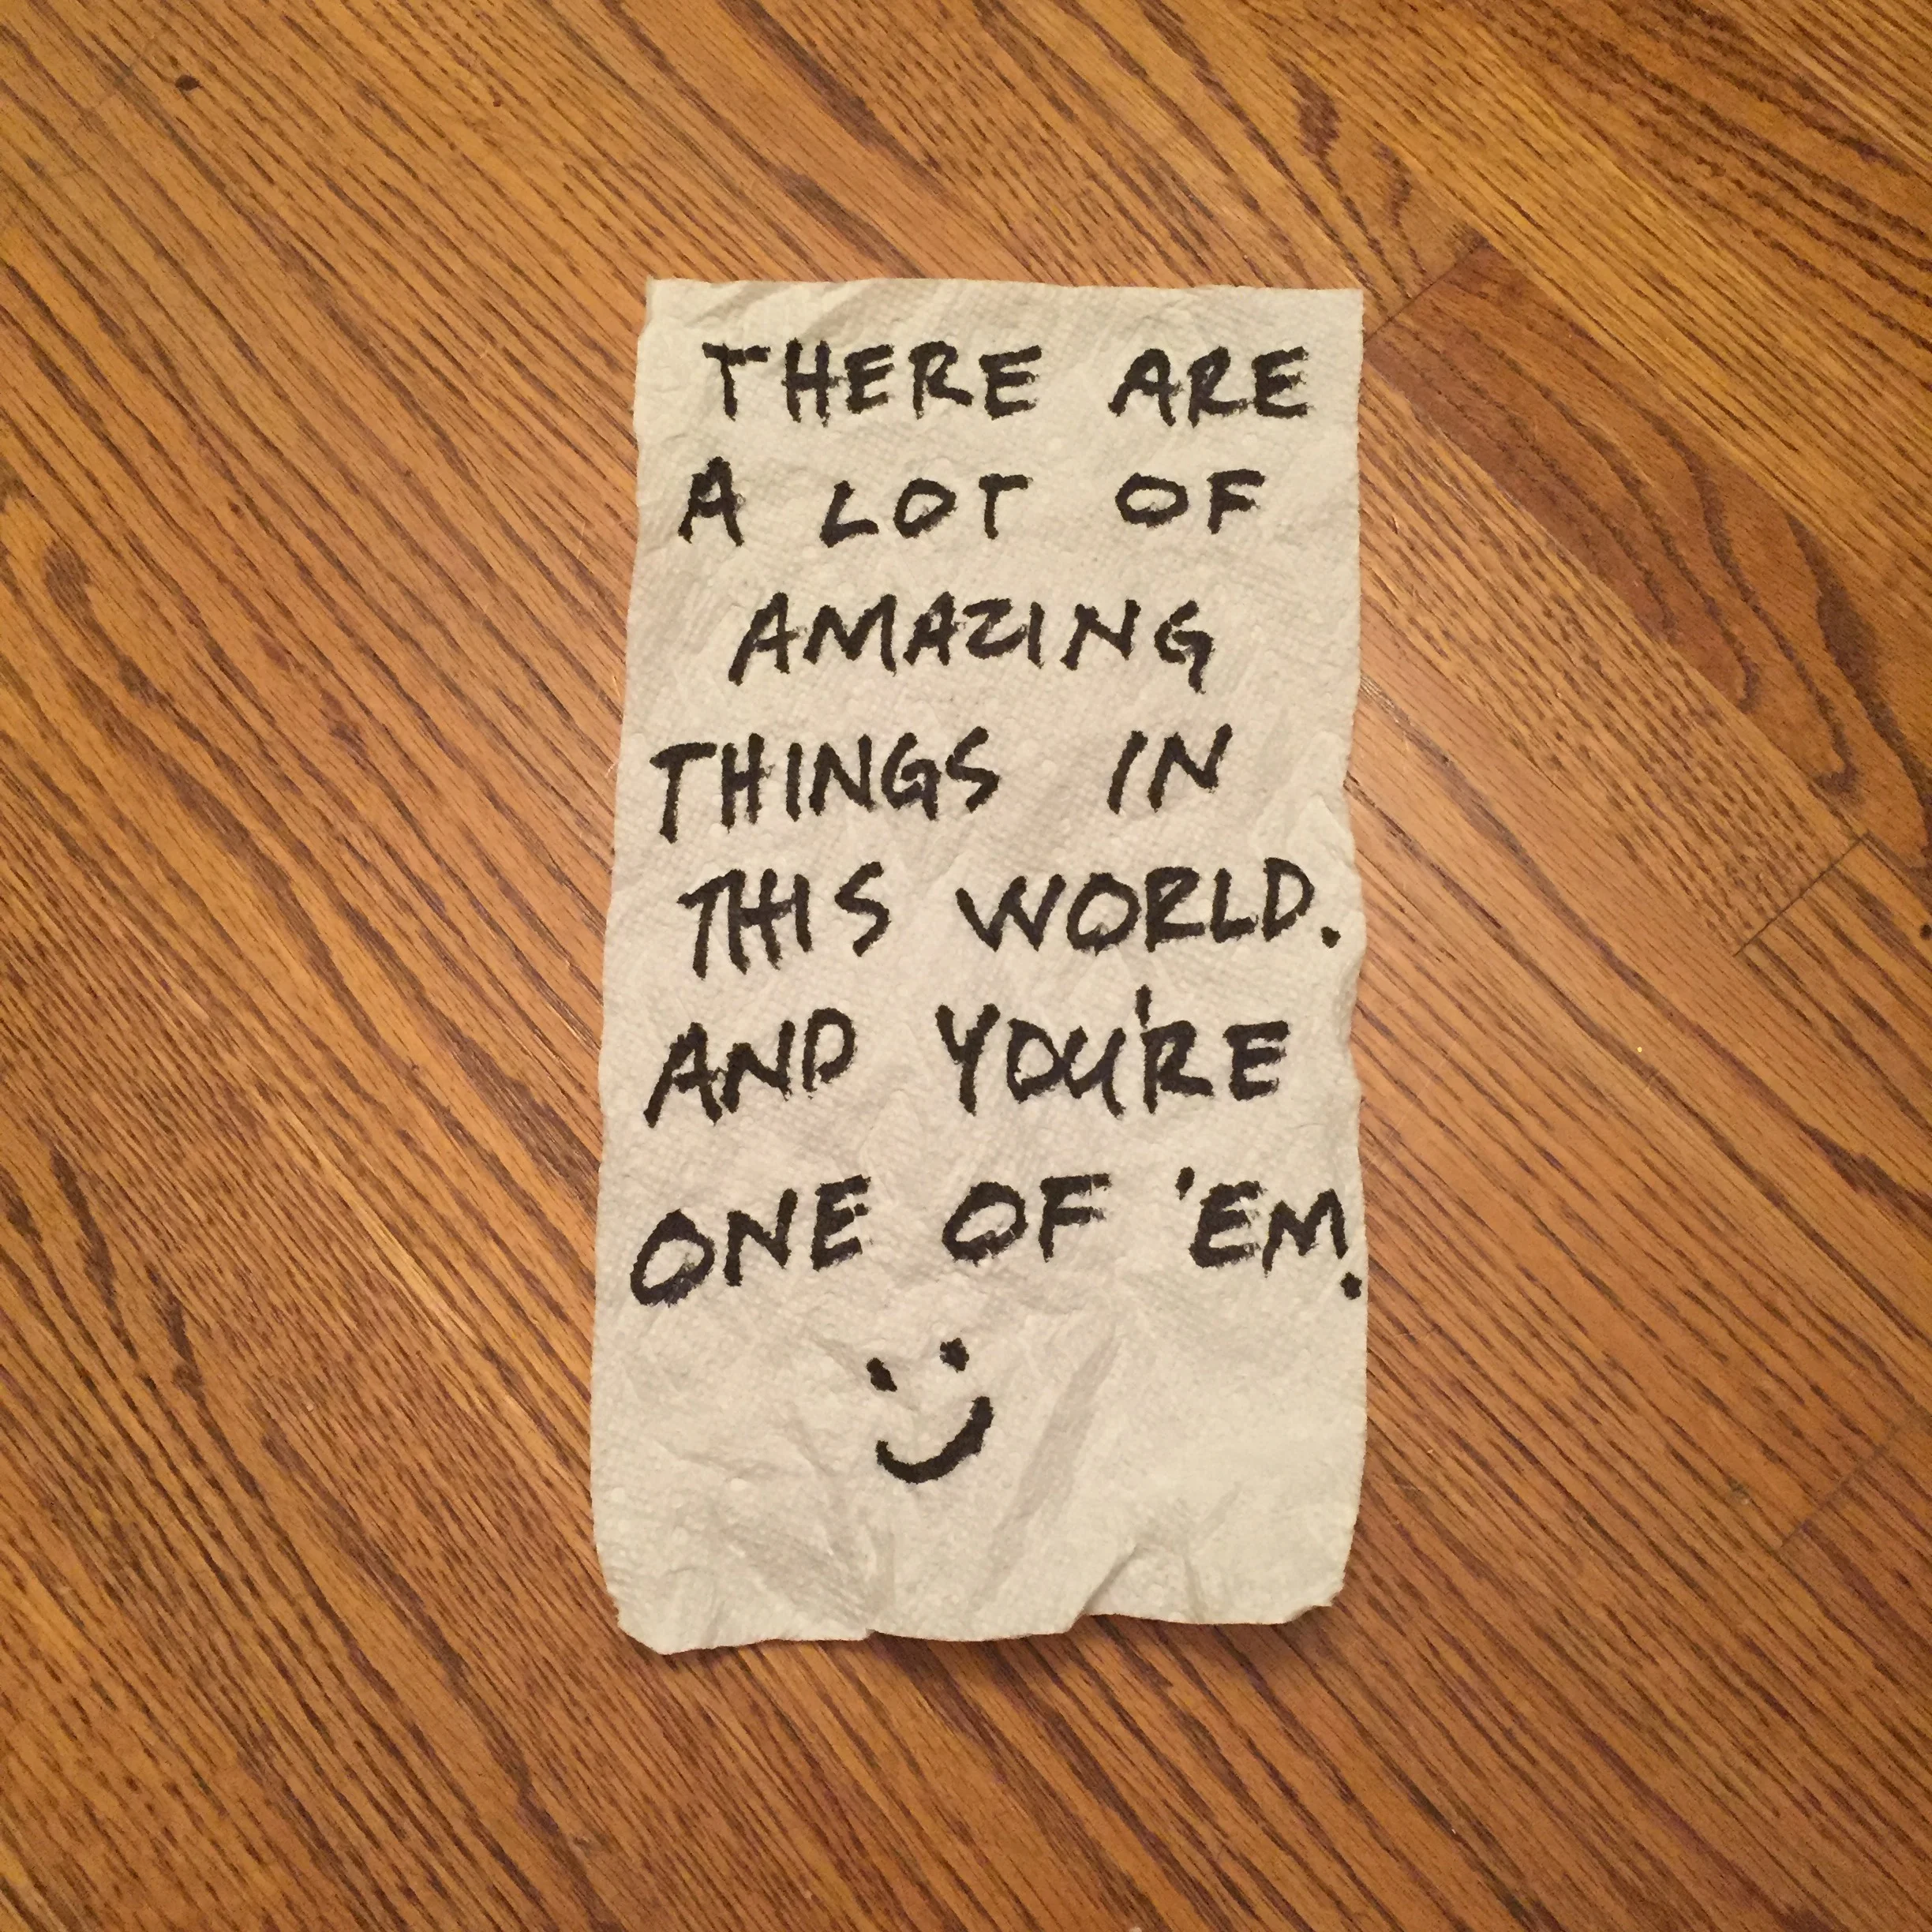 THERE ARE
A LOT OF
AMAZING
THINGS IN
THIS WORLD.
AND YOU'RE
ONE OF 'EM.